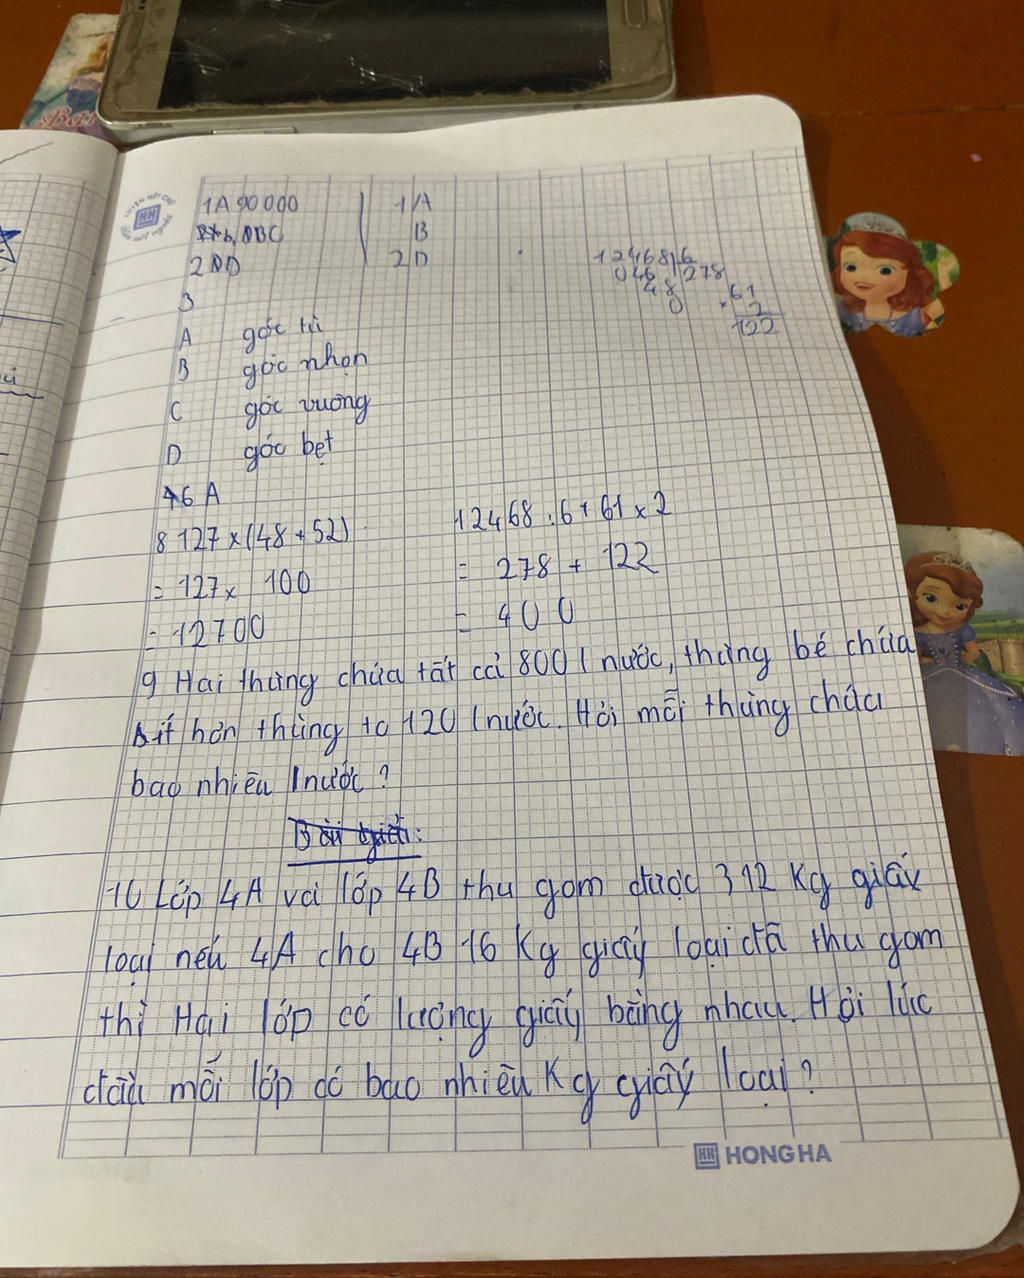 1A 90 000
b, ABC
2DD
1A
B
2D
12468 6
046 278
48
0
61
× 2
122
3
A góc tù
B góc nhọn
C góc vuông
D góc bẹt
6 A
8 127 × (48 + 52)
= 127 × 100
= 12700
12468 : 6 + 61 × 2
= 278 + 122
= 400
9 Hai thùng chứa tất cả 800 l nước, thùng bé chứa
ít hơn thùng to 120 l nước. Hỏi mỗi thùng chứa
bao nhiêu l nước?
Bài giải:
10 Lớp 4A và lớp 4B thu gom được 312 Kg giấy
loại nếu 4A cho 4B 16 Kg giấy loại đã thu gom
thì Hai lớp có lượng giấy bằng nhau. Hỏi lúc
đầu mỗi lớp có bao nhiêu Kg giấy loại?
HH HONG HA